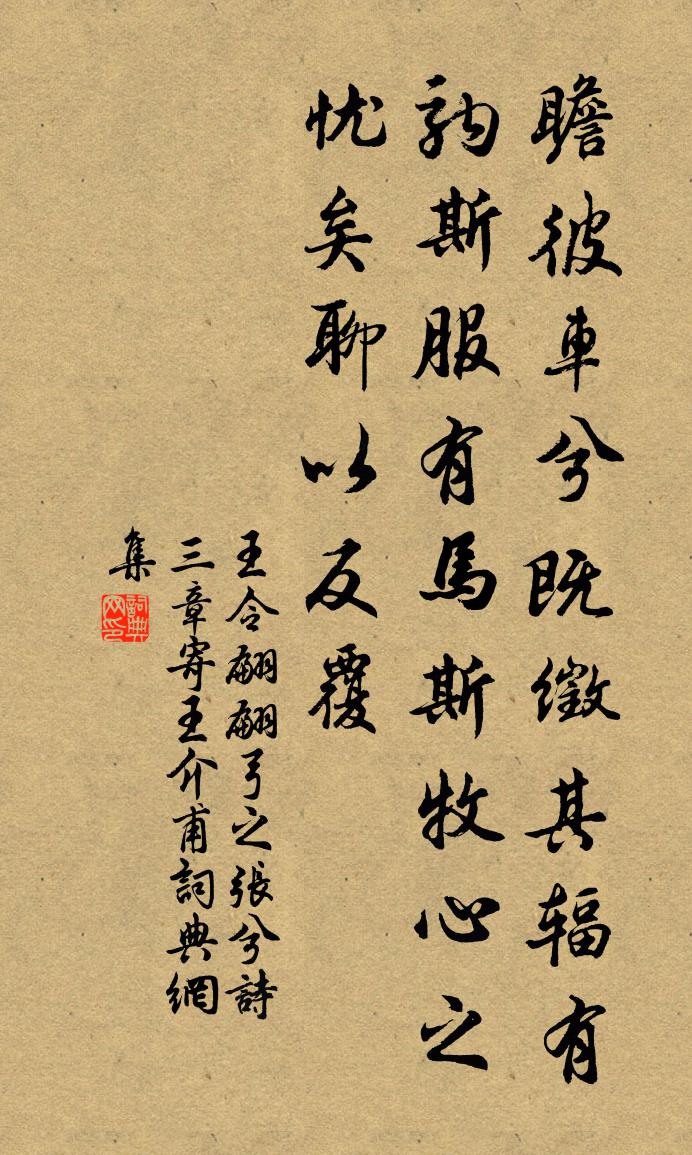 瞻彼車兮既徵其辐有
軜斯服有馬斯牧心之
忧矣聊以反覆
王令翩翩弓之張兮詩
三章寄王介甫詞典網
集
詞典
网印